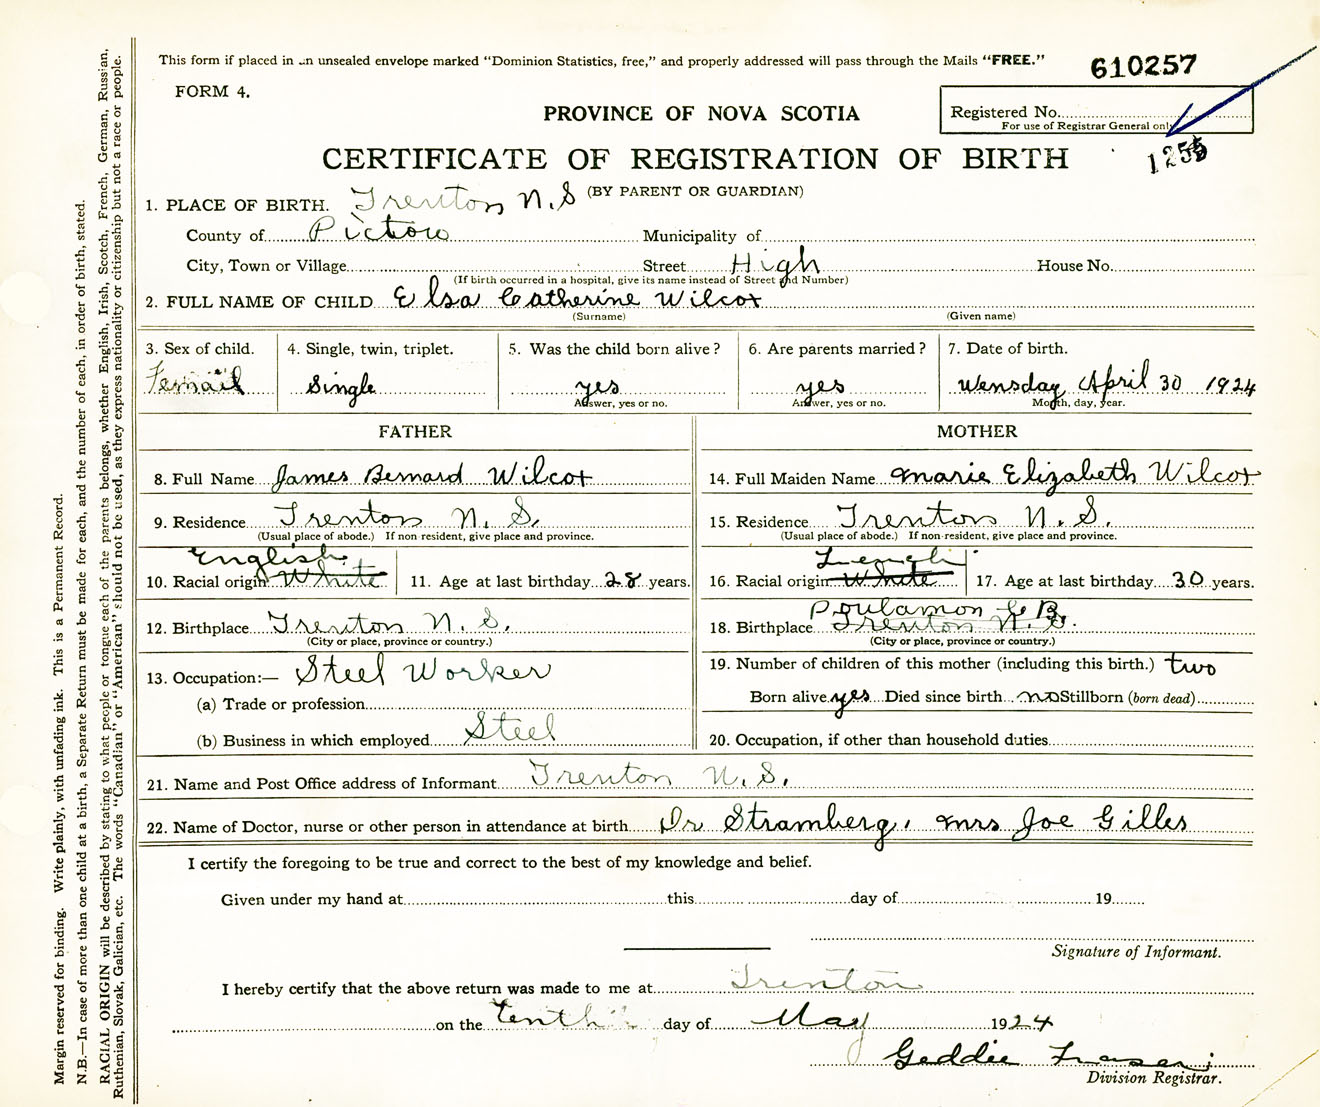 This form if placed in an unsealed envelope marked "Dominion Statistics, free," and properly addressed will pass through the Mails "FREE."
610257
FORM 4.
PROVINCE OF NOVA SCOTIA
Registered No.
For use of Registrar General only
CERTIFICATE OF REGISTRATION OF BIRTH
1255
(BY PARENT OR GUARDIAN)
1. PLACE OF BIRTH. Trenton N.S
County of Pictou Municipality of
City, Town or Village Street High House No.
(If birth occurred in a hospital, give its name instead of Street and Number)
2. FULL NAME OF CHILD Elsa Catherine Wilcox
(Surname) (Given name)
3. Sex of child. 4. Single, twin, triplet. 5. Was the child born alive? 6. Are parents married? 7. Date of birth.
Femail Single yes yes Wensday April 30 1924
Answer, yes or no. Answer, yes or no. Month, day, year.
FATHER
8. Full Name James Bernard Wilcox
9. Residence Trenton N. S.
(Usual place of abode.) If non-resident, give place and province.
English
10. Racial origin White 11. Age at last birthday 28 years.
12. Birthplace Trenton N. S.
(City or place, province or country.)
13. Occupation:— Steel Worker
(a) Trade or profession
(b) Business in which employed Steel
MOTHER
14. Full Maiden Name Marie Elizabeth Wilcox
15. Residence Trenton N. S.
(Usual place of abode.) If non-resident, give place and province.
16. Racial origin White 17. Age at last birthday 30 years.
Poulamon C B.
18. Birthplace Trenton N. S.
(City or place, province or country.)
19. Number of children of this mother (including this birth.) two
Born alive yes Died since birth no Stillborn (born dead)
20. Occupation, if other than household duties
21. Name and Post Office address of Informant Trenton N. S.
22. Name of Doctor, nurse or other person in attendance at birth Dr Stramberg, Mrs Joe Gilles
I certify the foregoing to be true and correct to the best of my knowledge and belief.
Given under my hand at this day of 19
Signature of Informant.
I hereby certify that the above return was made to me at Trenton
on the Tenth day of May 1924
Geddie Fraser
Division Registrar.
Margin reserved for binding. Write plainly, with unfading ink. This is a Permanent Record.
N.B.—In case of more than one child at a birth, a Separate Return must be made for each, and the number of each, in order of birth, stated.
RACIAL ORIGIN will be described by stating to what people or tongue each of the parents belongs, whether English, Irish, Scotch, French, German, Russian,
Ruthenian, Slovak, Galician, etc. The words "Canadian" or "American" should not be used, as they express nationality or citizenship but not a race or people.